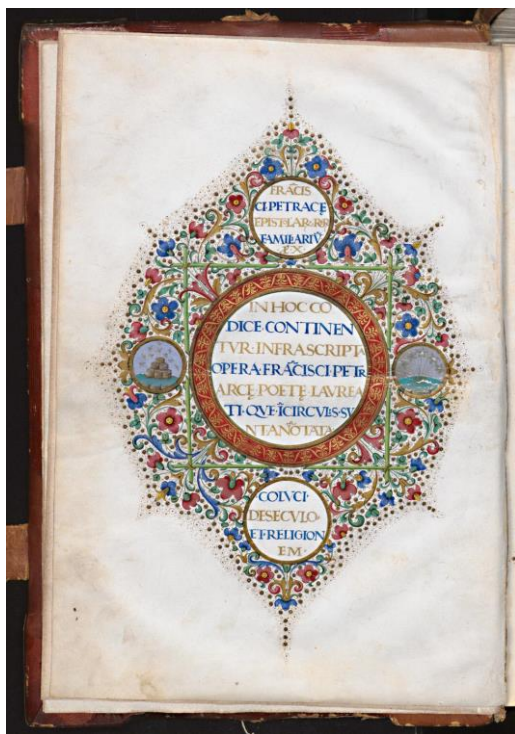 FRĀCIS
CI·PETRACĘ
EPIST·LAR·RꝶR
FAMILARIV̄
EX·
IN HOC CO
DICE·CONTINEN
TVR·INFRASCRIPTA
OPERA·FRĀCISCI·PETR
ARCĘ·POETĘ·LAVREA
TI·QVE·ĪCIRCVLIS·SV
NTANŌTATA
COLVCI·
DESECVLO·
ET·RELIGION
EM·